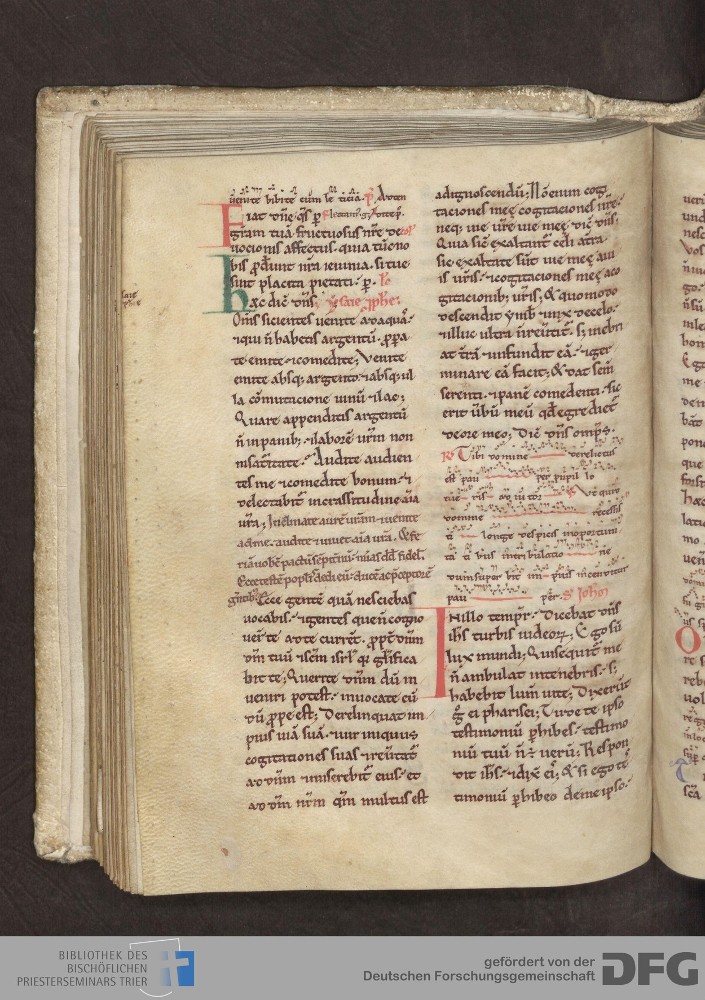 uenite bibite cum le ticia. P. Atten
Fiat dn̄e q̄s p
gr̄am tuā fructuosus nr̄e de
uocionis affectus. quia tūc no
bis ꝓderunt nr̄a ieiunia. si tue
sunt placita pietati. p. Lc̄
Hæc dic̄ dn̄s.
Om̄s sicientes uenite ad aquas.
⁊qui n̄ habetis argentū. ꝓpa
te emite ⁊comedite; Venite
emite absq; argento ⁊absq; ul
la cōmutacione uinū ⁊lac;
Quare appenditis argentū
n̄ in panib; ⁊laborē ur̄m non
in saturitate. Audite audien
tes me ⁊comedite bonum. ⁊
delectabit̄ in crassitudine aīa
ur̄a; Inclinate aurē uram ⁊uenite
ad me. audite ⁊uiuet aīa ura. & fe
riā uobc̄ pactū sēpitnū. mīas dd̄ fidel.
Ecce testē popl̄is dedi eū. ducē ac p̄ceptorē
gentib;
Ecce gentē quā nesciebas
uocabis. ⁊gentes que n̄ cogno
uer̄t te ad te current. ꝓpt̄ dn̄m
dm̄ tuū ⁊scm̄ isrl̄ q̄a gl̄ifica
bit te; Querite dn̄m dū in
ueniri potest. inuocate eū
dū ꝓpe est; Derelinquat im
pius uiā suā. ⁊uir iniquus
cogitationes suas ⁊reūtat̄
ad dn̄m ⁊miserebit̄ eius. et
ad dm̄ nr̄m qm̄ multus est
ad ignoscendū; Nō enim cogi
taciones meę cogitaciones ur̄e.
neq; uie ur̄e uie meę dic̄ dn̄s;
Quia sic̄ exaltant̄ celi a t̄ra.
sic exaltate sūt uie meę a ui
is ur̄is. ⁊cogitaciones meę a co
gitacionib; ur̄is; & quomodo
descendit ymb ⁊nix de celo.
⁊illuc ultra n̄ reūtit̄. s; inebri
at t̄rā ⁊infundit eā. ⁊ger
minare eā facit; & dat sem̄
serenti. ⁊panē comedenti. sic
erit ūbū meū qd̄ egredieť
de ore meo; Dic̄ dn̄s omp̄s.
R Tibi domine derelictus
est pau per pupil lo
tu eris ad iu tor V Vt quid
domine recessis
ti longe despicis in oportuni
ta ti bus in tribulatio ne
dum super bit im pius incenditur
pau per. S. Ioh̄
In illo tempr̄. Dicebat dn̄s
ih̄s turbis iudeoꝝ; Ego sū
lux mundi; Qui sequit̄ me
n̄ ambulat in tenebris. s;
habebit lum̄ uite; Dixer̄t
g̊ ei pharisei; Tu de te ipso
testimoniū ꝑhibes. testimo
niū tuū n̄ ē uerū; Respon
dit ih̄s ⁊dix̄ eī; & si ego te
timoniū ꝑhibeo de me ipso.
BIBLIOTHEK DES
BISCHÖFLICHEN
PRIESTERSEMINARS TRIER
gefördert von der
Deutschen Forschungsgemeinschaft
DFG